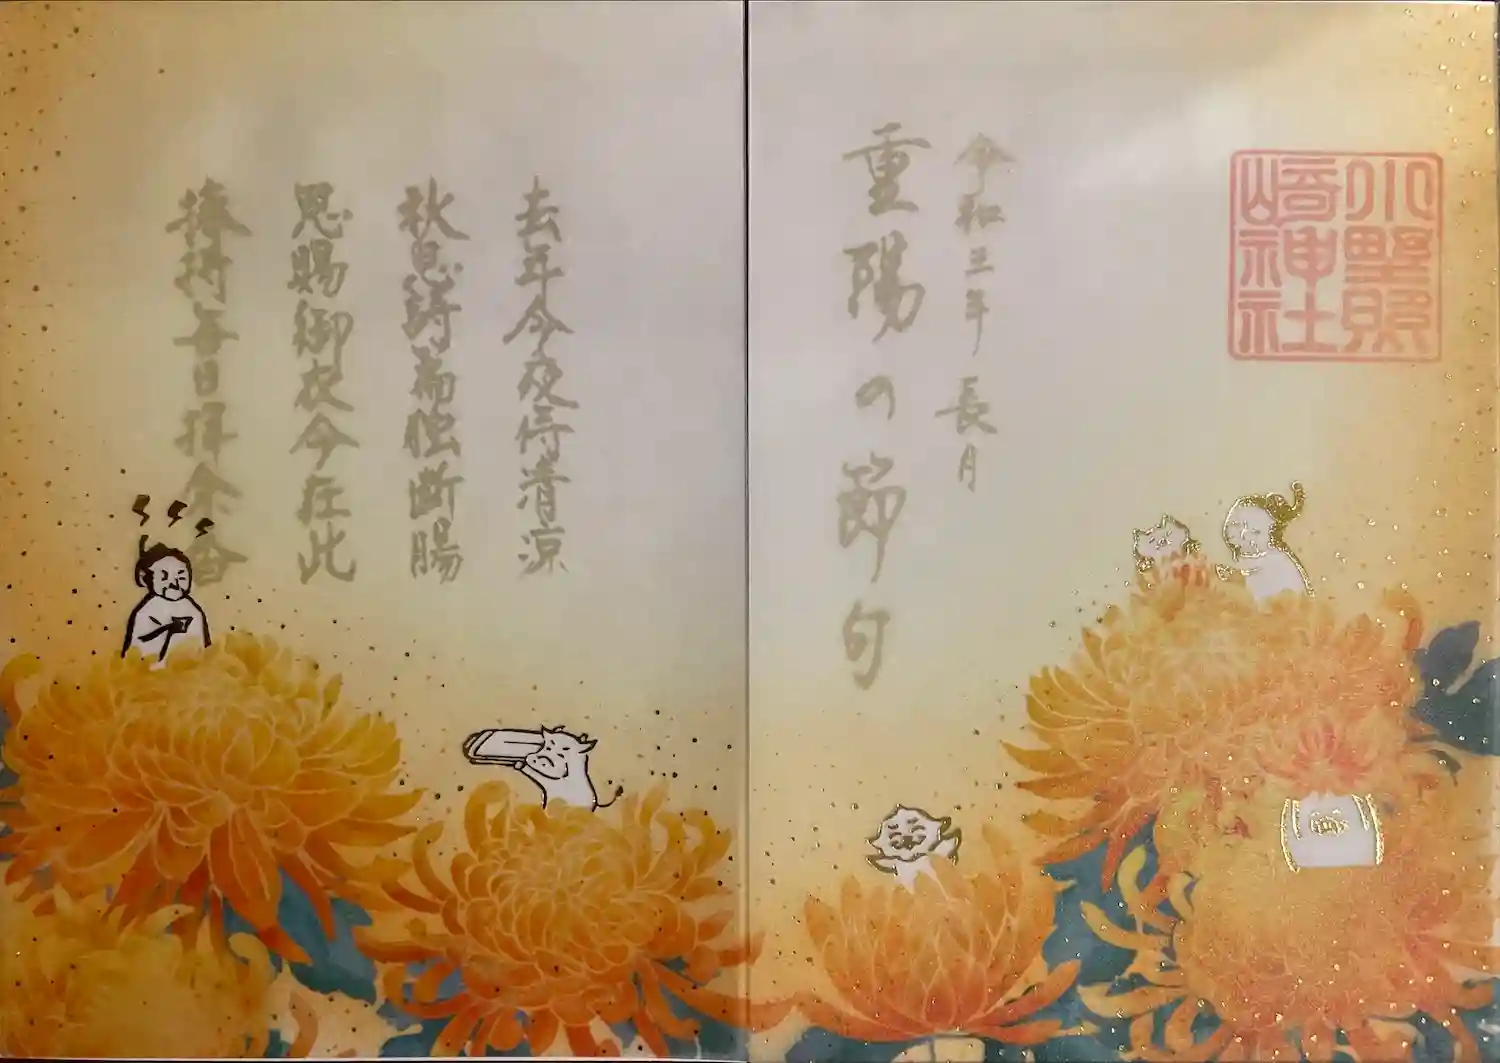 小野照
崎神社
令和三年 長月
重陽の節句
去年今夜侍清涼
秋思詩篇独断腸
恩賜御衣今在此
捧持毎日拝余香